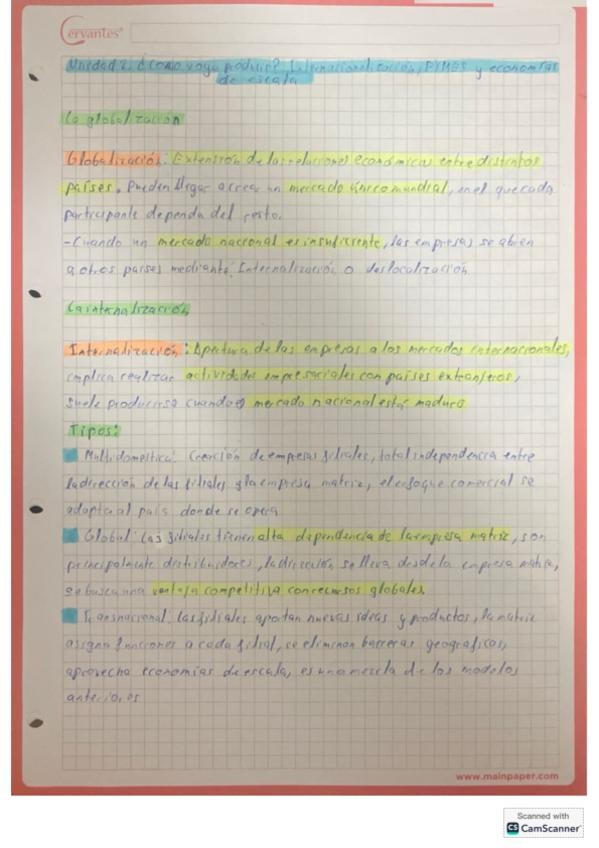 Cervantes
Unidad 2. ¿Como voy a producir? Internacionalización, PYMES y economías
de escala
La globalización
Globalización: Extensión de las relaciones económicas entre distintos
países. Pueden llegar a crear un mercado único mundial, en el que cada
participante dependa del resto.
-Cuando un mercado nacional es insuficiente, las empresas se abren
a otros países mediante: Internalización o deslocalización
La internalización
Internalización: Apertura de las empresas a los mercados internacionales,
implica realizar actividades empresariales con países extranjeros,
suele producirse cuando el mercado nacional está maduro
Tipos:
Multidoméstica: Creación de empresas filiales, total independencia entre
la dirección de las filiales y la empresa matriz, el enfoque comercial se
adapta al país donde se opera
Global: Las filiales tienen alta dependencia de la empresa matriz, son
principalmente distribuidores, la dirección se lleva desde la empresa matriz,
se busca una ventaja competitiva con recursos globales.
Transnacional: las filiales aportan nuevas ideas y productos, la matriz
asigna funciones a cada filial, se eliminan barreras geograficas,
aprovecha economías de escala, es una mezcla de los modelos
anteriores
www.mainpaper.com
Scanned with
CS CamScanner